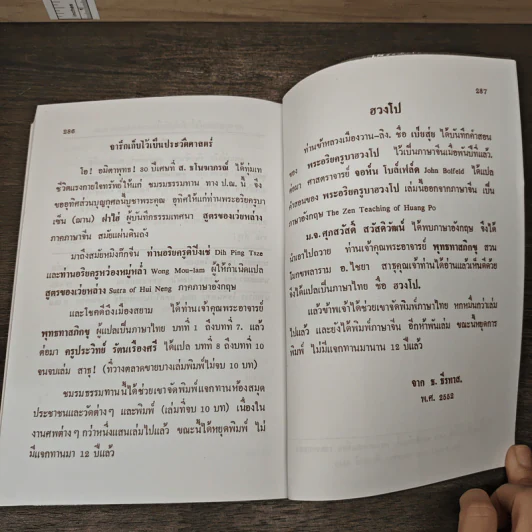 286
จารึกเก็บไว้เป็นประวัติศาสตร์
โอ! อมิตาพุทธ! 30 ปีเศษที่ ส. ธนฆฤกษ์ ได้ทุ่มเท
ชีวิตแรงกายใจทรัพย์ให้แก่ ชมรมธรรมทาน ทาง ป.ณ. นี้ จึง
ขออุทิศส่วนบุญกุศลน้อมบูชาพระคุณ อุทิศให้แก่ท่านพระอริยครูบา
เซ็น (ฌาน) ฝาไห่ ผู้บันทึกธรรมเทศนา สูตรของเว่ยหล่าง
ภาคภาษาจีน สมัยแผ่นดินถัง
มาถึงสมัยหมิงก๊กจีน ท่านอริยครูดีปิงเซ่ Dih Ping Tsze
และท่านอริยครูหว่องหมู่หล่ำ Wong Mou-lam ผู้ให้กำเนิดแปล
สูตรของเว่ยหล่าง Sutra of Hui Neng ภาคภาษาอังกฤษ
และโชคดีถึงเมืองสยาม ได้ท่านเจ้าคุณพระอาจารย์
พุทธทาสภิกขุ ผู้แปลเป็นภาษาไทย บทที่ 1 ถึงบทที่ 7. แล้ว
ต่อมา ครูประวิทย์ รัตนเรืองศรี ได้แปล บทที่ 8 ถึงบทที่ 10
จนจบเล่ม สาธุ! (ที่วางตลาดขายบางเล่มพิมพ์ไม่จบ 10 บท)
ชมรมธรรมทานนี้ได้ช่วยเขาจัดพิมพ์แจกทานห้องสมุด
ประชาชนและวัดต่างๆ และพิมพ์ (เล่มที่จบ 10 บท) เนื่องใน
งานศพต่างๆ กว่าหนึ่งแสนเล่มไปแล้ว ขณะนี้ได้หยุดพิมพ์ ไม่
มีแจกทานมา 12 ปีแล้ว
287
ฮวงโป
ท่านข้าหลวงเมืองวาน-ลิง. ชื่อ เป็ยสุ่ย ได้บันทึกคำสอน
ของ พระอริยครูบาฮวงโป ไว้เป็นภาษาจีนเมื่อพันปีที่แล้ว.
ต่อมา ศาสตราจารย์ จอห์น โบล์เฟ็ลด์ John Bolfeld ได้แปล
คำสอนของ พระอริยครูบาฮวงโป เล่มนี้ออกจากภาษาจีน เป็น
ภาษาอังกฤษ The Zen Teaching of Huang Po
ม.จ.ศุภสวัสดิ์ สวัสดิวัฒน์ ได้พบภาษาอังกฤษ จึงได้
นำเอาไปถวาย ท่านเจ้าคุณพระอาจารย์ พุทธทาสภิกขุ สวน
โมกขพลาราม อ. ไชยา สาธุคุณเจ้าท่านได้อ่านแล้วยินดีด้วย
จึงได้แปลเป็นภาษาไทย ชื่อ ฮวงโป.
แล้วข้าพเจ้าได้ช่วยเขาจัดพิมพ์ภาษาไทย หกหมื่นกว่าเล่ม
ไปแล้ว และยังได้พิมพ์ภาษาจีน อีกห้าพันเล่ม ขณะนี้หยุดการ
พิมพ์ ไม่มีแจกทานมานาน 12 ปีแล้ว
จาก ธ. ธีรทาส.
พ.ศ. 2552